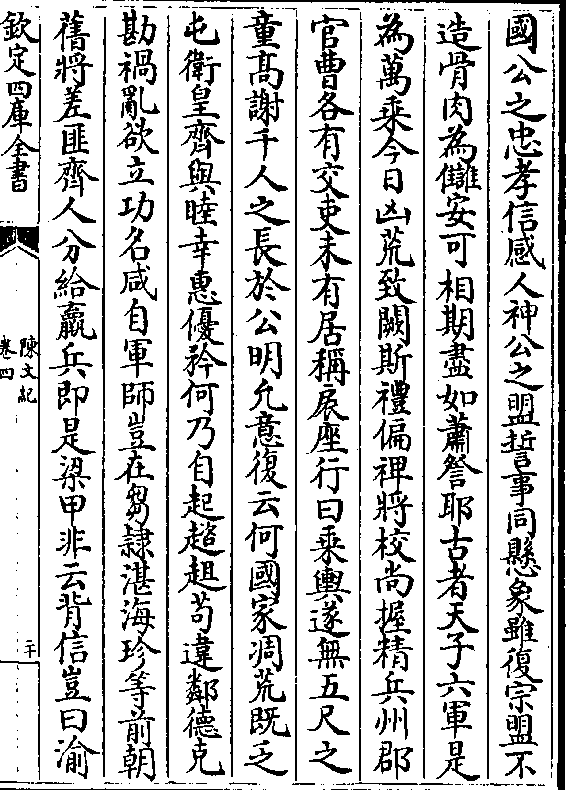 國公之忠孝信感人神公之盟誓事同懸象雖復宗盟不
造骨肉為讎安可相期盡如蕭詧耶古者天子六軍是
為萬乘今日凶荒致闕斯禮偏裨將校尚握精兵州郡
官曹各有交吏未有居稱扆座行曰乘輿遂無五尺之
童髙謝千人之長於公明允意復云何國家凋荒既乏
屯衛皇齊與睦幸惠優矜何乃自起趑趄苟違鄰德克
勘禍亂欲立功名咸自軍師豈在芻隷湛海珍等前朝
舊將差匪齊人分給羸兵即是梁甲非云背信豈曰渝
欽定四庫全書
陳文紀
卷四
二十